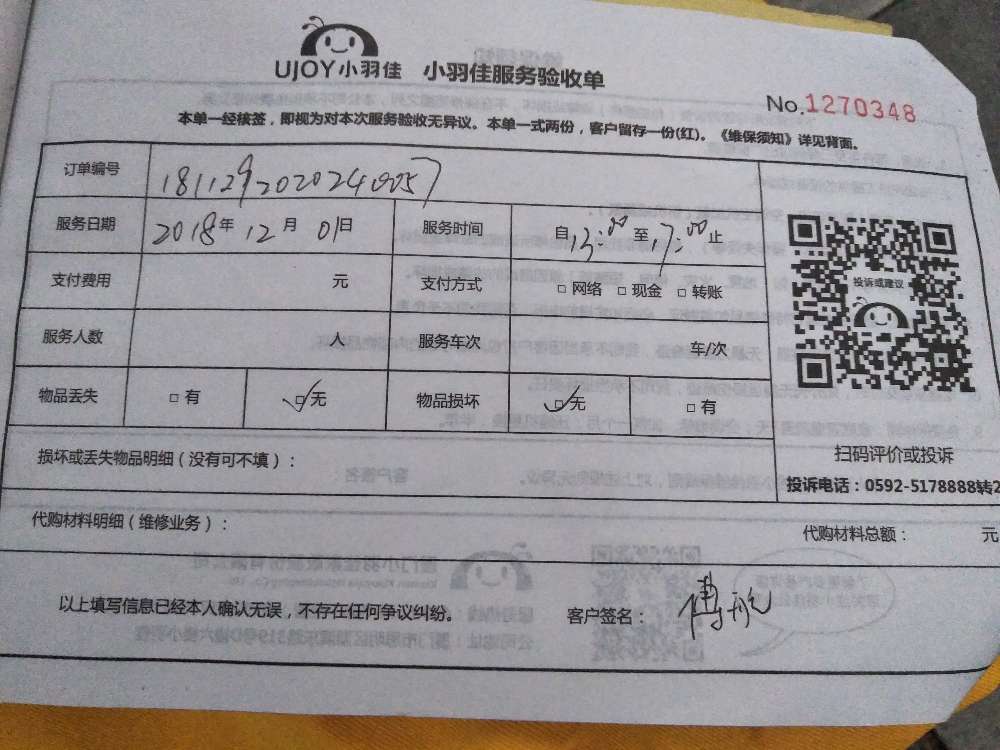 UJOY小羽佳 小羽佳服务验收单
No.1270348
本单一经核签，即视为对本次服务验收无异议。本单一式两份，客户留存一份(红)。《维保须知》详见背面。
订单编号 1811292020240057
服务日期 2018年 12月 01日 服务时间 自13:00至17:00止
支付费用 元 支付方式 □网络 □现金 □转账
服务人数 人 服务车次 车/次
物品丢失 □有 ☑无 物品损坏 ☑无 □有
投诉或建议
扫码评价或投诉
投诉电话：0592-5178888转2
损坏或丢失物品明细（没有可不填）：
代购材料明细（维修业务）： 代购材料总额： 元
以上填写信息已经本人确认无误，不存在任何争议纠纷。 客户签名：傅